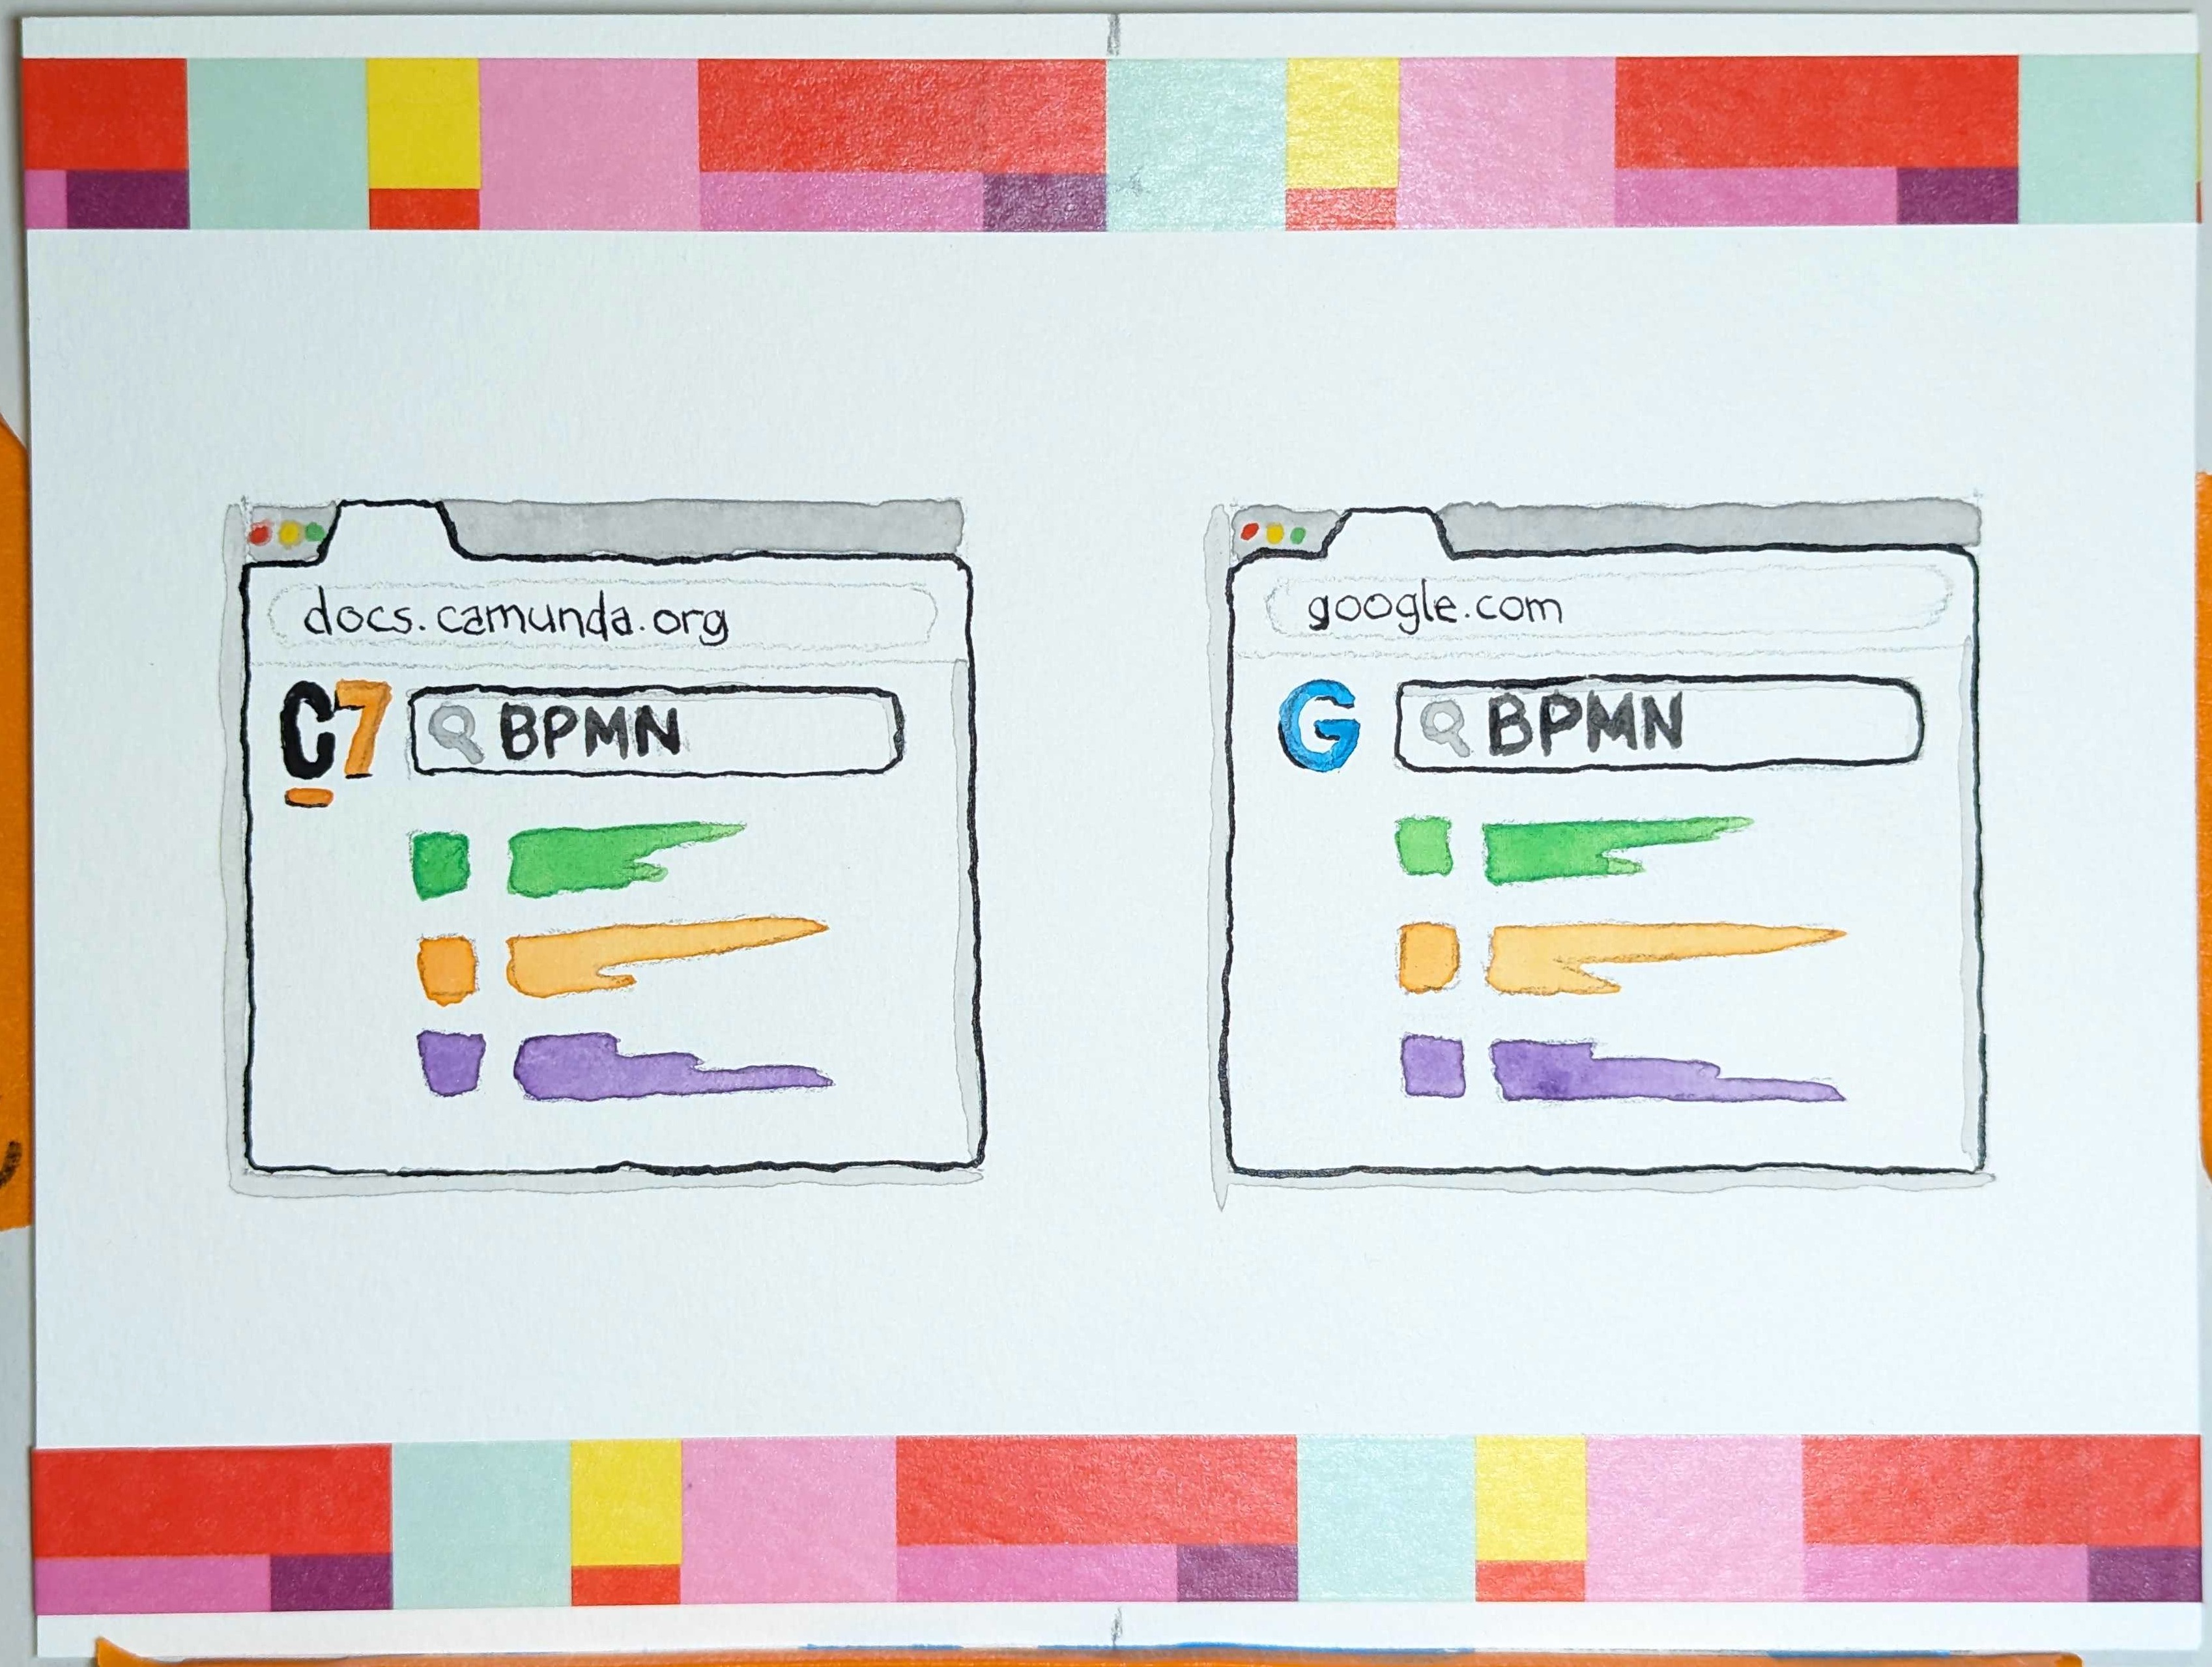 docs.camunda.org
C7 BPMN
google.com
G BPMN